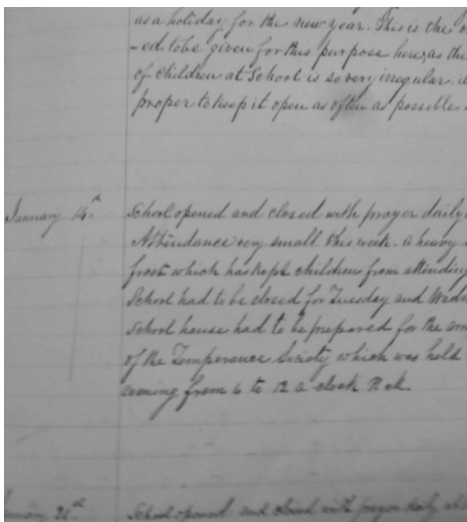 as a holiday for the new year. This is the
-ed to be given for this purpose here, as the
of children at School is so very irregular.
proper to keep it open as often as possible
January 14th
School opened and closed with prayer daily
Attendance very small this week. a heavy
frost which has kept children from attending
School had to be closed for Tuesday and
School house had to be prepared for the
of the Temperance Society which was held
evening from 6 to 12 a clock P.M.
21st
School opened and closed with prayer daily